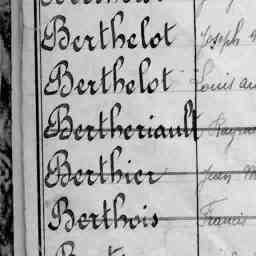 Berthelot Joseph
Berthelot Louis
Bertheriault
Berthier Jean
Berthois Francis